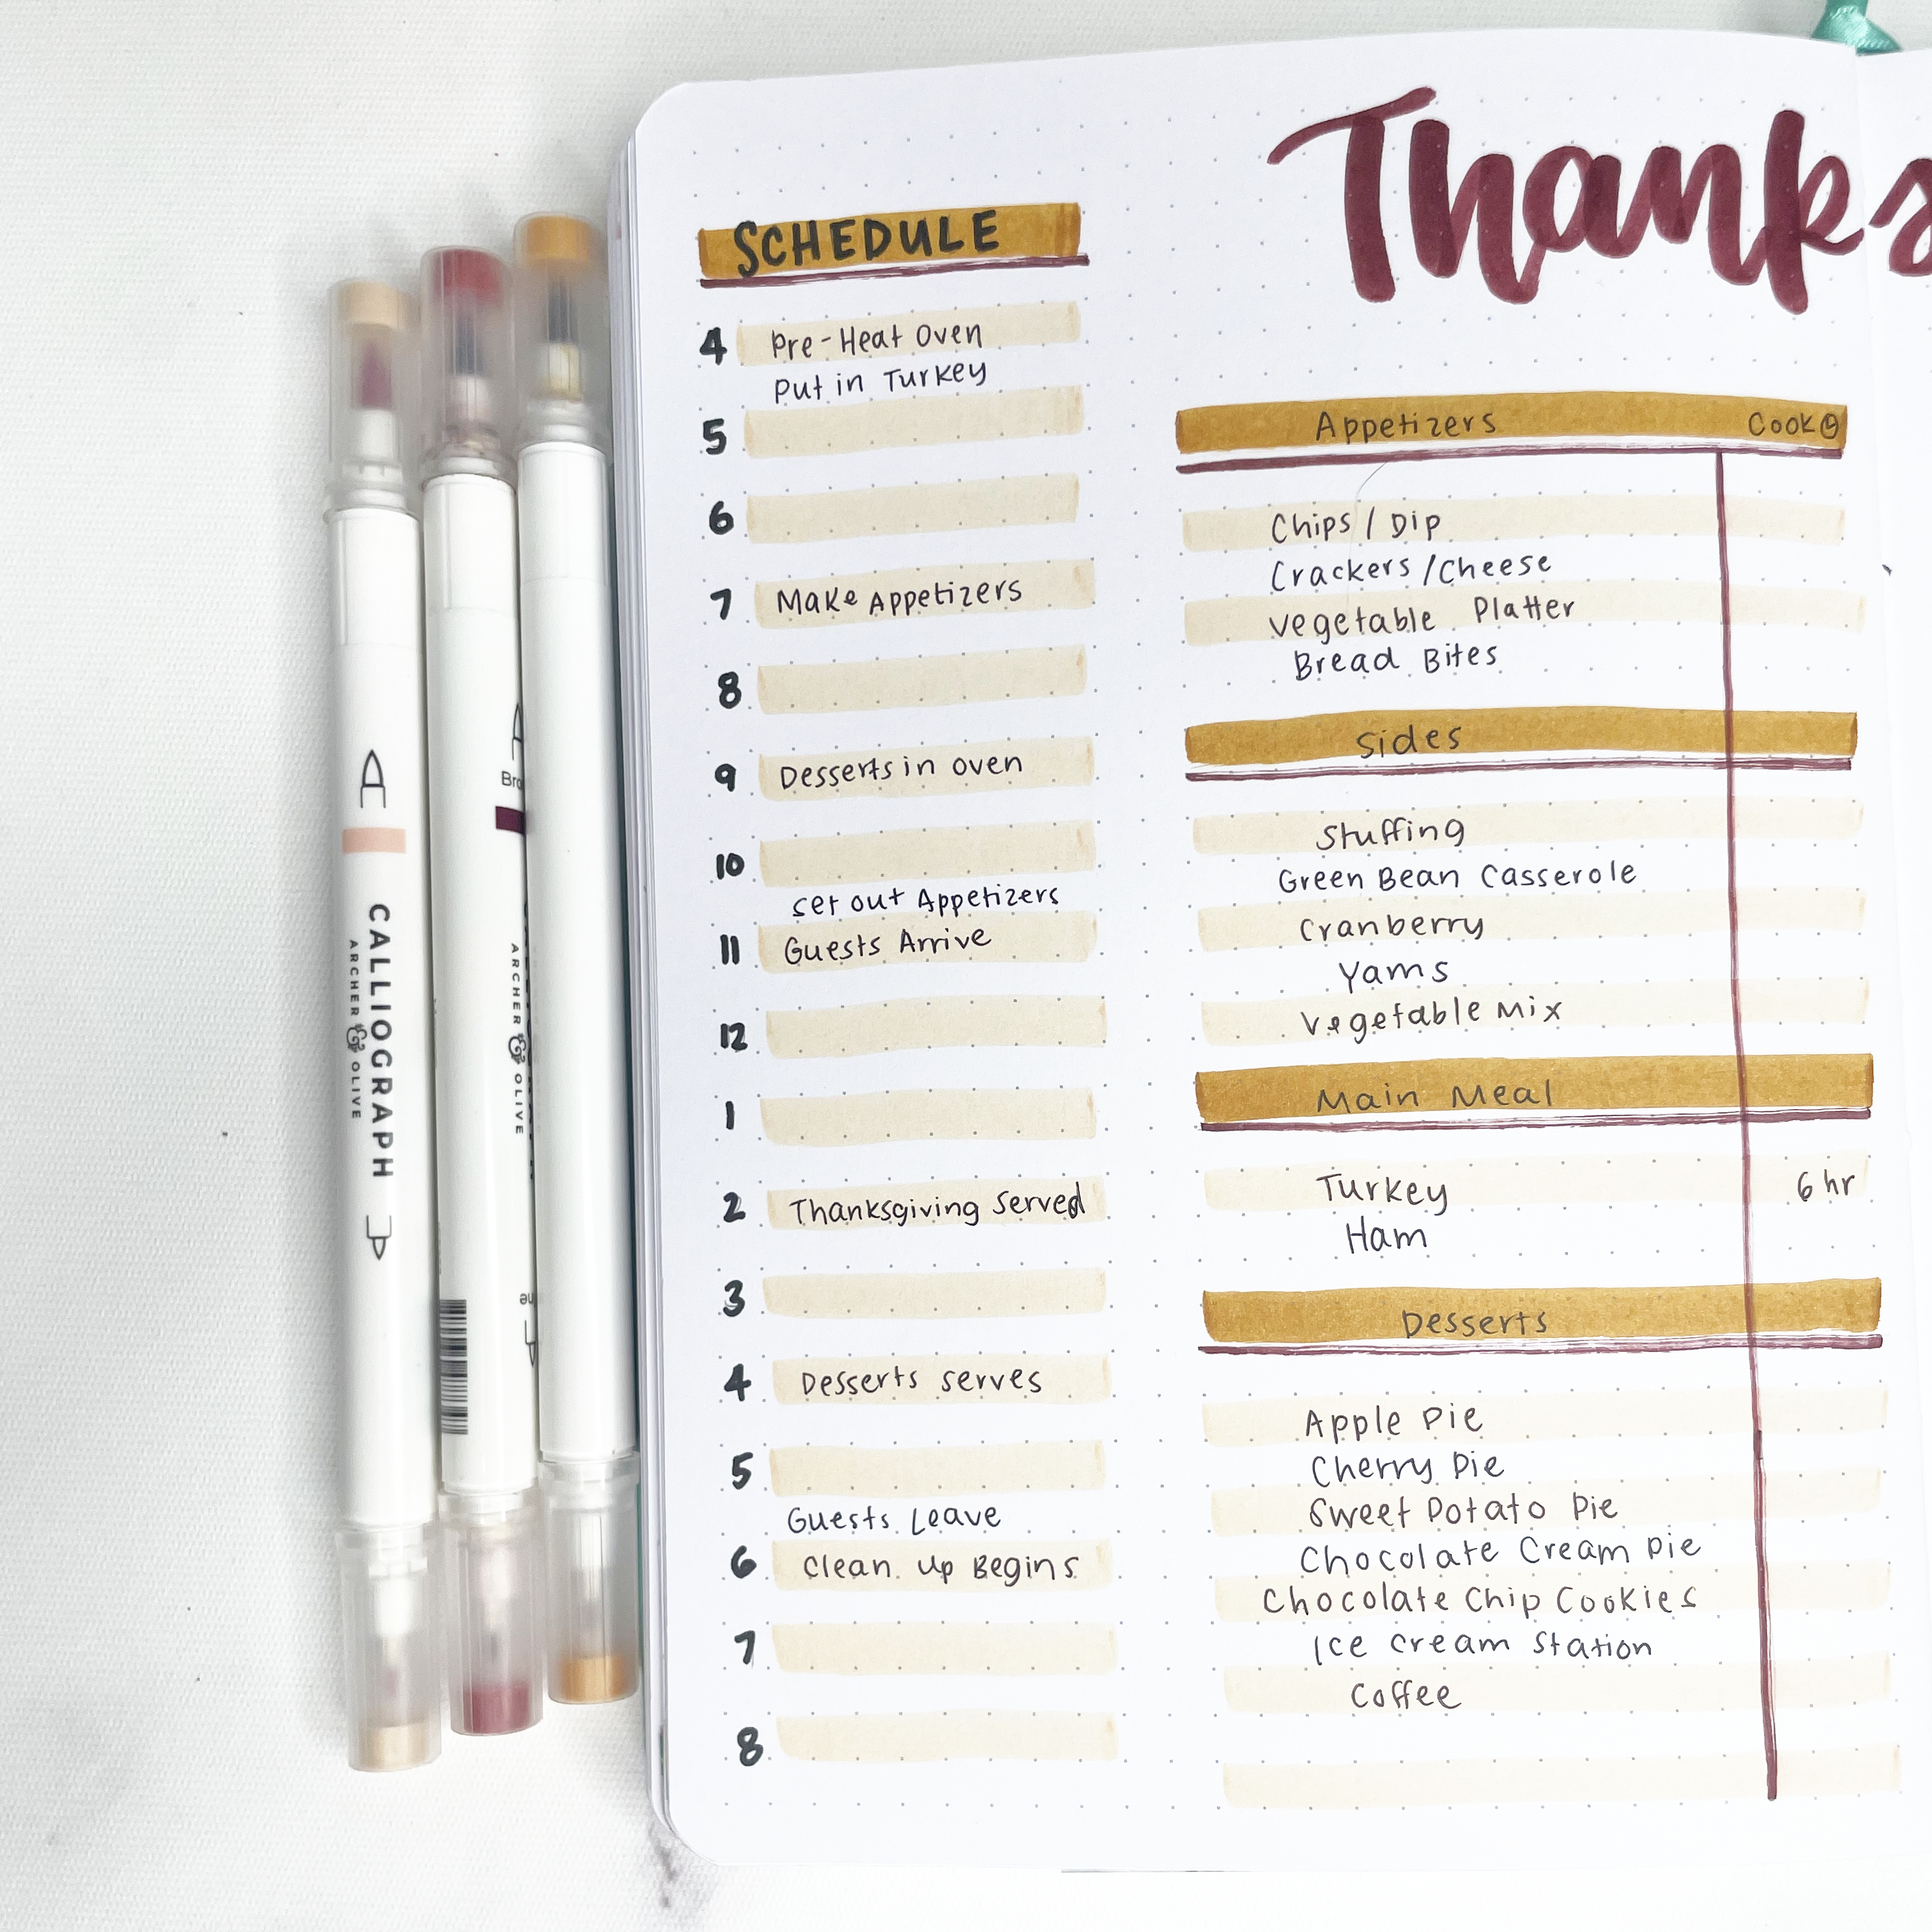 Thanks
SCHEDULE
4 Pre-Heat Oven
Put in Turkey
5
6
7 Make Appetizers
8
9 Desserts in oven
10
set out Appetizers
11 Guests Arrive
12
1
2 Thanksgiving Served
3
4 Desserts serves
5
Guests Leave
6 Clean Up Begins
7
8
Appetizers Cook
Chips / Dip
Crackers / Cheese
Vegetable Platter
Bread Bites
Sides
Stuffing
Green Bean Casserole
Cranberry
Yams
Vegetable Mix
Main Meal
Turkey 6 hr
Ham
Desserts
Apple Pie
Cherry Pie
Sweet Potato Pie
Chocolate Cream Pie
Chocolate Chip Cookies
Ice Cream Station
Coffee
CALLIOGRAPH
ARCHER & OLIVE
Bro
ARCHER & OLIVE